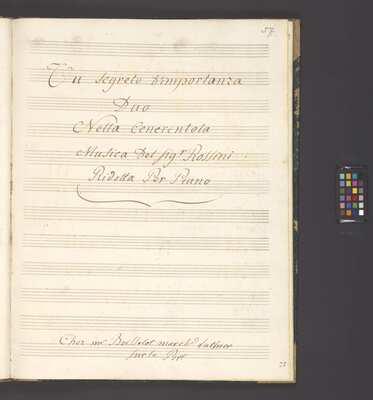 57
Un segreto d'importanza
Duo
Nella Cenerentola
Musica Del Sigr Rossini
Ridotta Per Piano
Chez mr
sur le Port